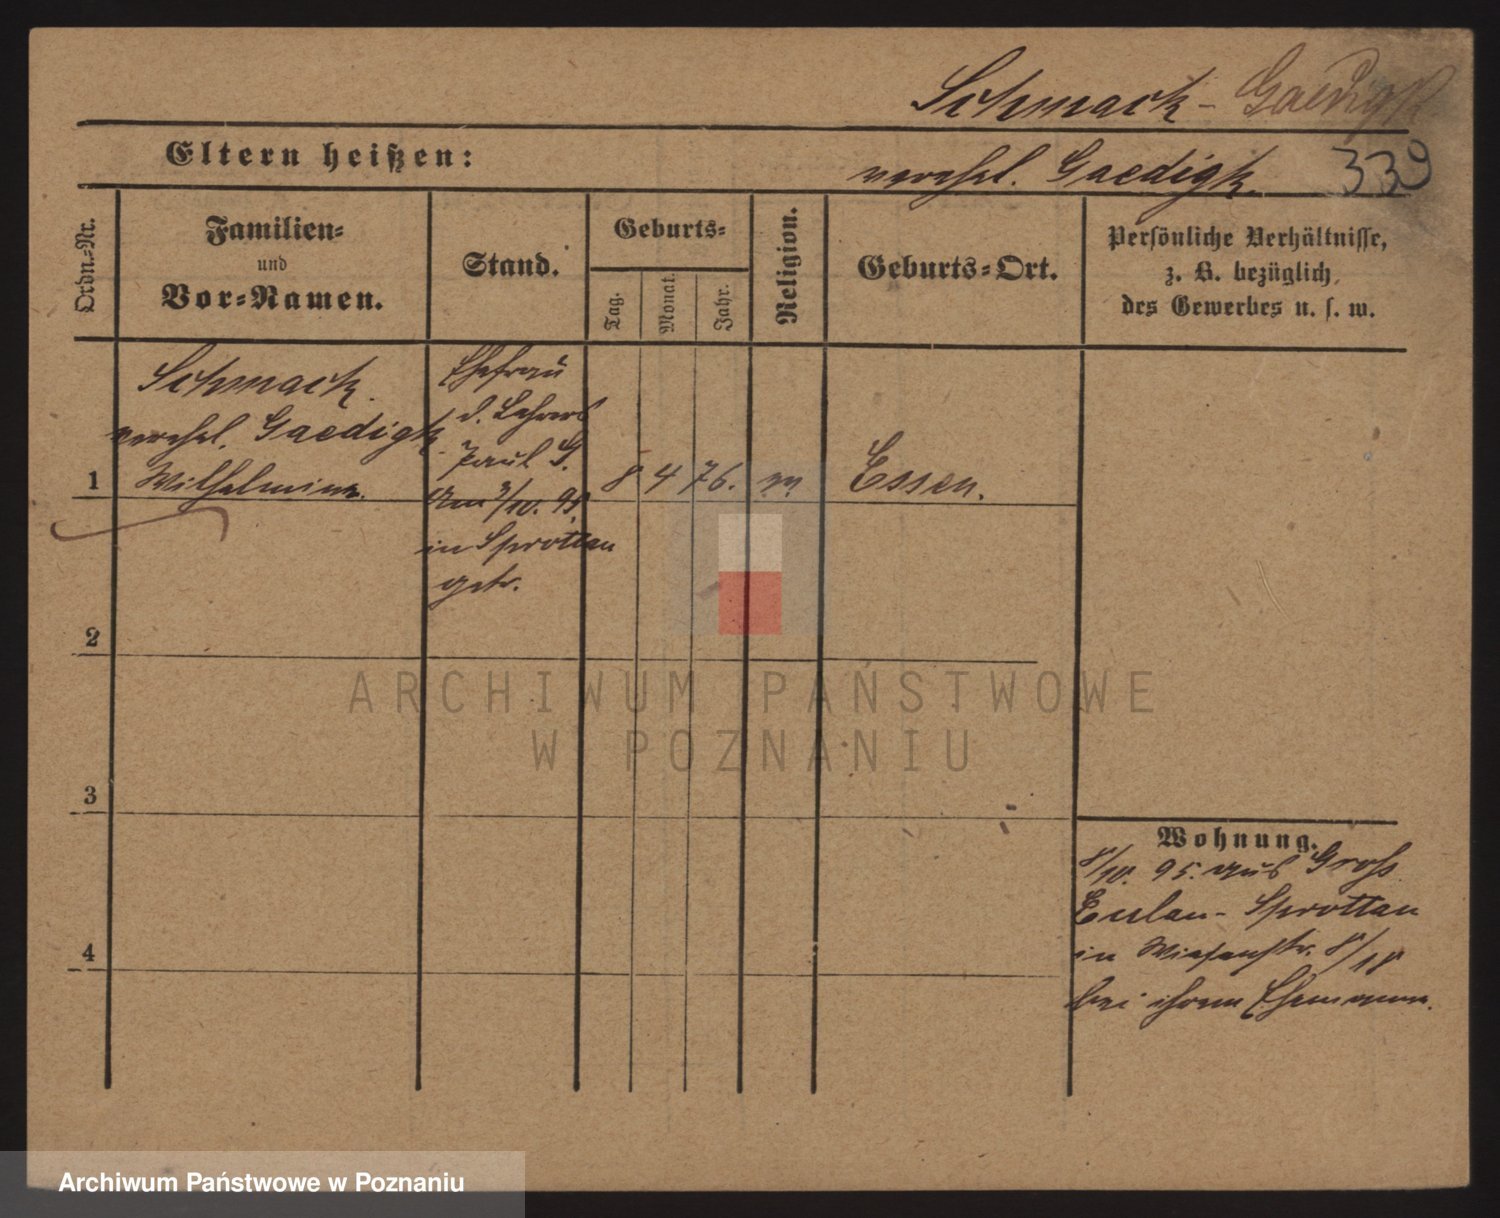 Schmack - Gaedigk
Eltern heißen:
verehel. Gaedigk.
339
Ordn.-Nr.
Familien-
und
Vor-Namen.
Stand.
Geburts-
Tag.
Monat.
Jahr.
Religion.
Geburts-Ort.
Persönliche Verhältnisse,
z. B. bezüglich
des Gewerbes u. s. w.
1
Schmack.
verehel. Gaedigk
Wilhelmine.
Ehefrau
d. Lehrers
Paul G.
am 3/10. 95.
in Sprottau
getr.
8 4 76.
Essen.
2
3
4
Wohnung.
8/10. 95. aus Groß
Eulau - Sprottau
in Wiesenstr. 8/18
bei ihrem Ehemanne.
ARCHIWUM PAŃSTWOWE
W POZNANIU
Archiwum Państwowe w Poznaniu